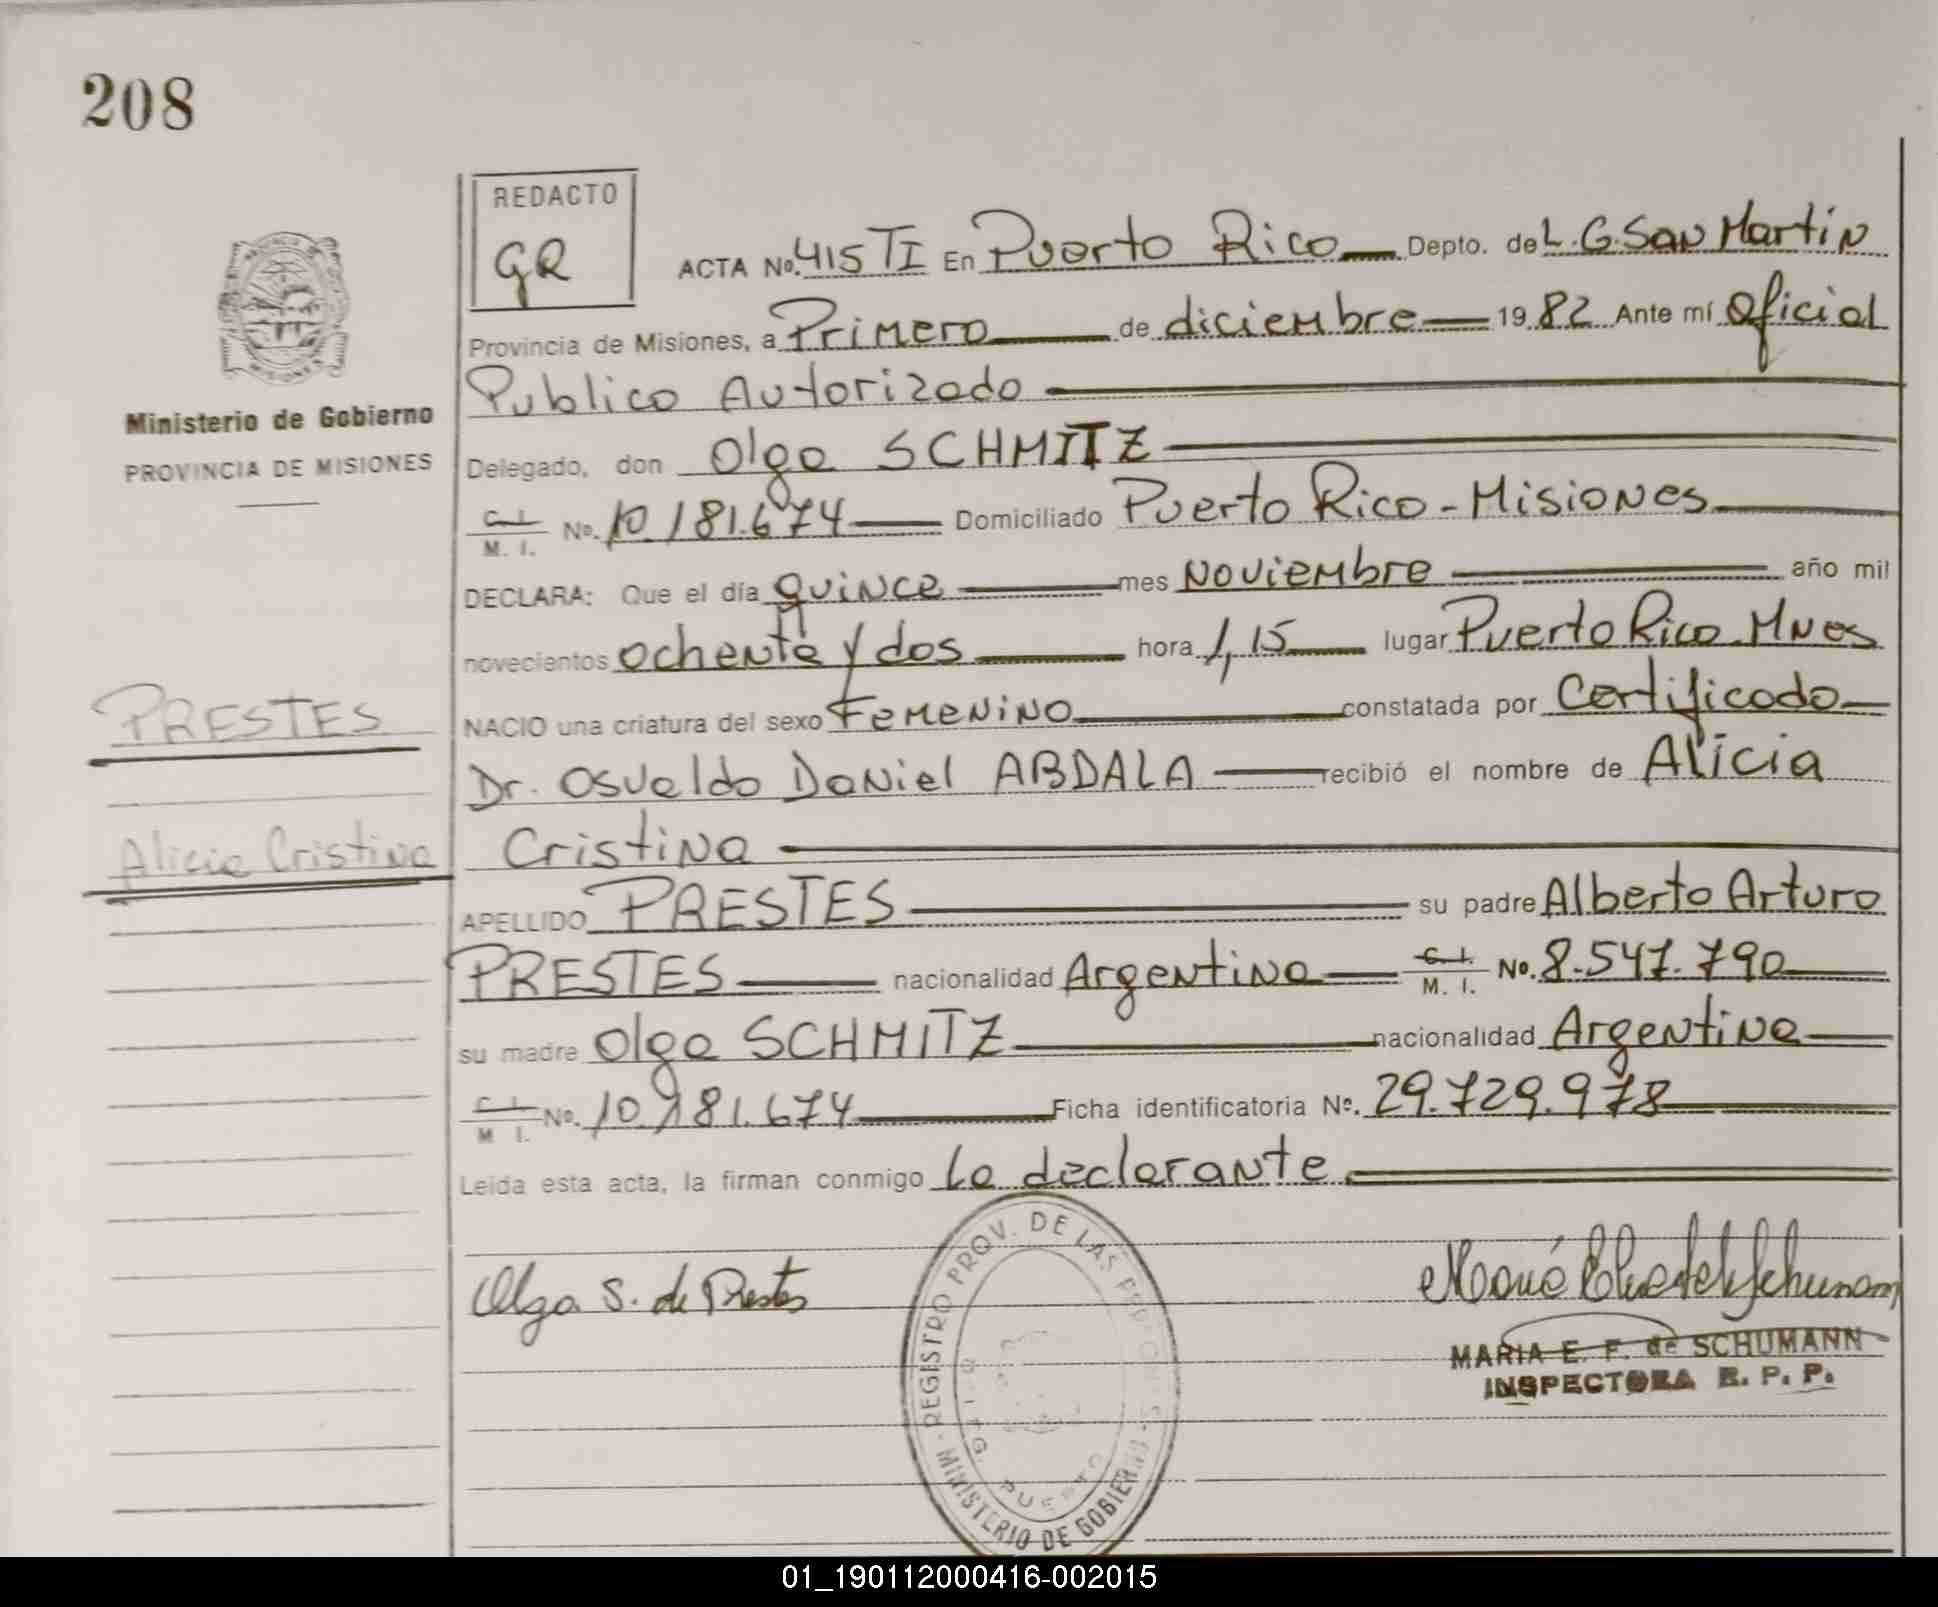 208
REDACTO
GR
ACTA No. 415 TI En Puerto Rico Depto. de L.G. San Martin
Provincia de Misiones, a Primero de diciembre 19 82 Ante mí Oficial
Publico Autorizado
Ministerio de Gobierno
PROVINCIA DE MISIONES
Delegado, don Olga SCHMITZ
C. I. / M. I. No. 10.181.674 Domiciliado Puerto Rico - Misiones
DECLARA: Que el día quince mes Noviembre año mil
novecientos ochenta y dos hora 1,15 lugar Puerto Rico Mnes
PRESTES
NACIO una criatura del sexo Femenino constatada por Certificado
Dr. Osvaldo Daniel ABDALA recibió el nombre de Alicia
Alicia Cristina
Cristina
APELLIDO PRESTES su padre Alberto Arturo
PRESTES nacionalidad Argentina C. I. / M. I. No. 8.547.790
su madre Olga SCHMITZ nacionalidad Argentina
C. I. / M. I. No. 10.181.674 Ficha identificatoria Nº. 29.729.978
Leida esta acta, la firman conmigo la declarante
Olga S. de Prestes
REGISTRO PROV. DE LAS PERSONAS
MINISTERIO DE GOBIERNO
PUERTO
MARIA E. F. de SCHUMANN
INSPECTORA R. P. P.
01_190112000416-002015